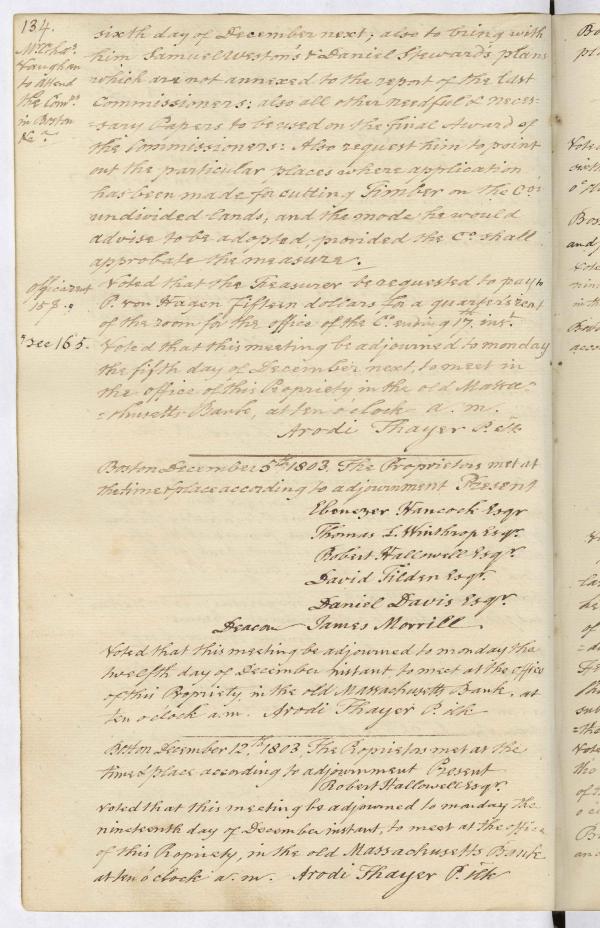 134.
Mr. Chas.
Vaughan
to attend
the Comrs.
in Boston
&ca.
sixth day of December next; also to bring with
him Samuel Weston's & Daniel Steward's plans
which are not annexed to the report of the last
Commissioners; also all other needful & neces=
=sary Papers to be used on the final Award of
the Commissioners: Also request him to point
out the particular places where application
has been made for cutting Timber on the Co's
undivided Lands, and the mode he would
advise to be adopted, provided the Co. shall
approbate the measure.
Office rent
15$.
Voted that the Treasurer be requested to pay to
P. von Hagen fifteen dollars for a quarter's rent
of the room for the office of the Co. ending 17th. inst.
See 165.
Voted that this meeting be adjourned to monday
the fifth day of December next, to meet in
the office of this Propriety in the old Massa=
=chusetts Bank, at ten o'clock a. m.
Arodi Thayer P. Clk
Boston December 5th. 1803. The Proprietors met at
the time & place according to adjournment Present
Ebenezer Hancock Esqr
Thomas L. Winthrop Esqr.
Robert Hallowell Esqr.
David Tilden Esqr.
Daniel Davis Esqr.
Deacon James Morrill
Voted that this meeting be adjourned to monday the
twelfth day of December instant, to meet at the office
of this Propriety, in the old Massachusetts Bank, at
ten o'clock a.m. Arodi Thayer P. Clk
Boston December 12.th 1803. The Proprietors met at the
time & place according to adjournment Present
Robert Hallowell Esqr.
Voted that this meeting be adjourned to monday the
nineteenth day of December instant, to meet at the office
of this Propriety, in the old Massachusetts Bank
at ten o'clock a. m. Arodi Thayer P. Clk